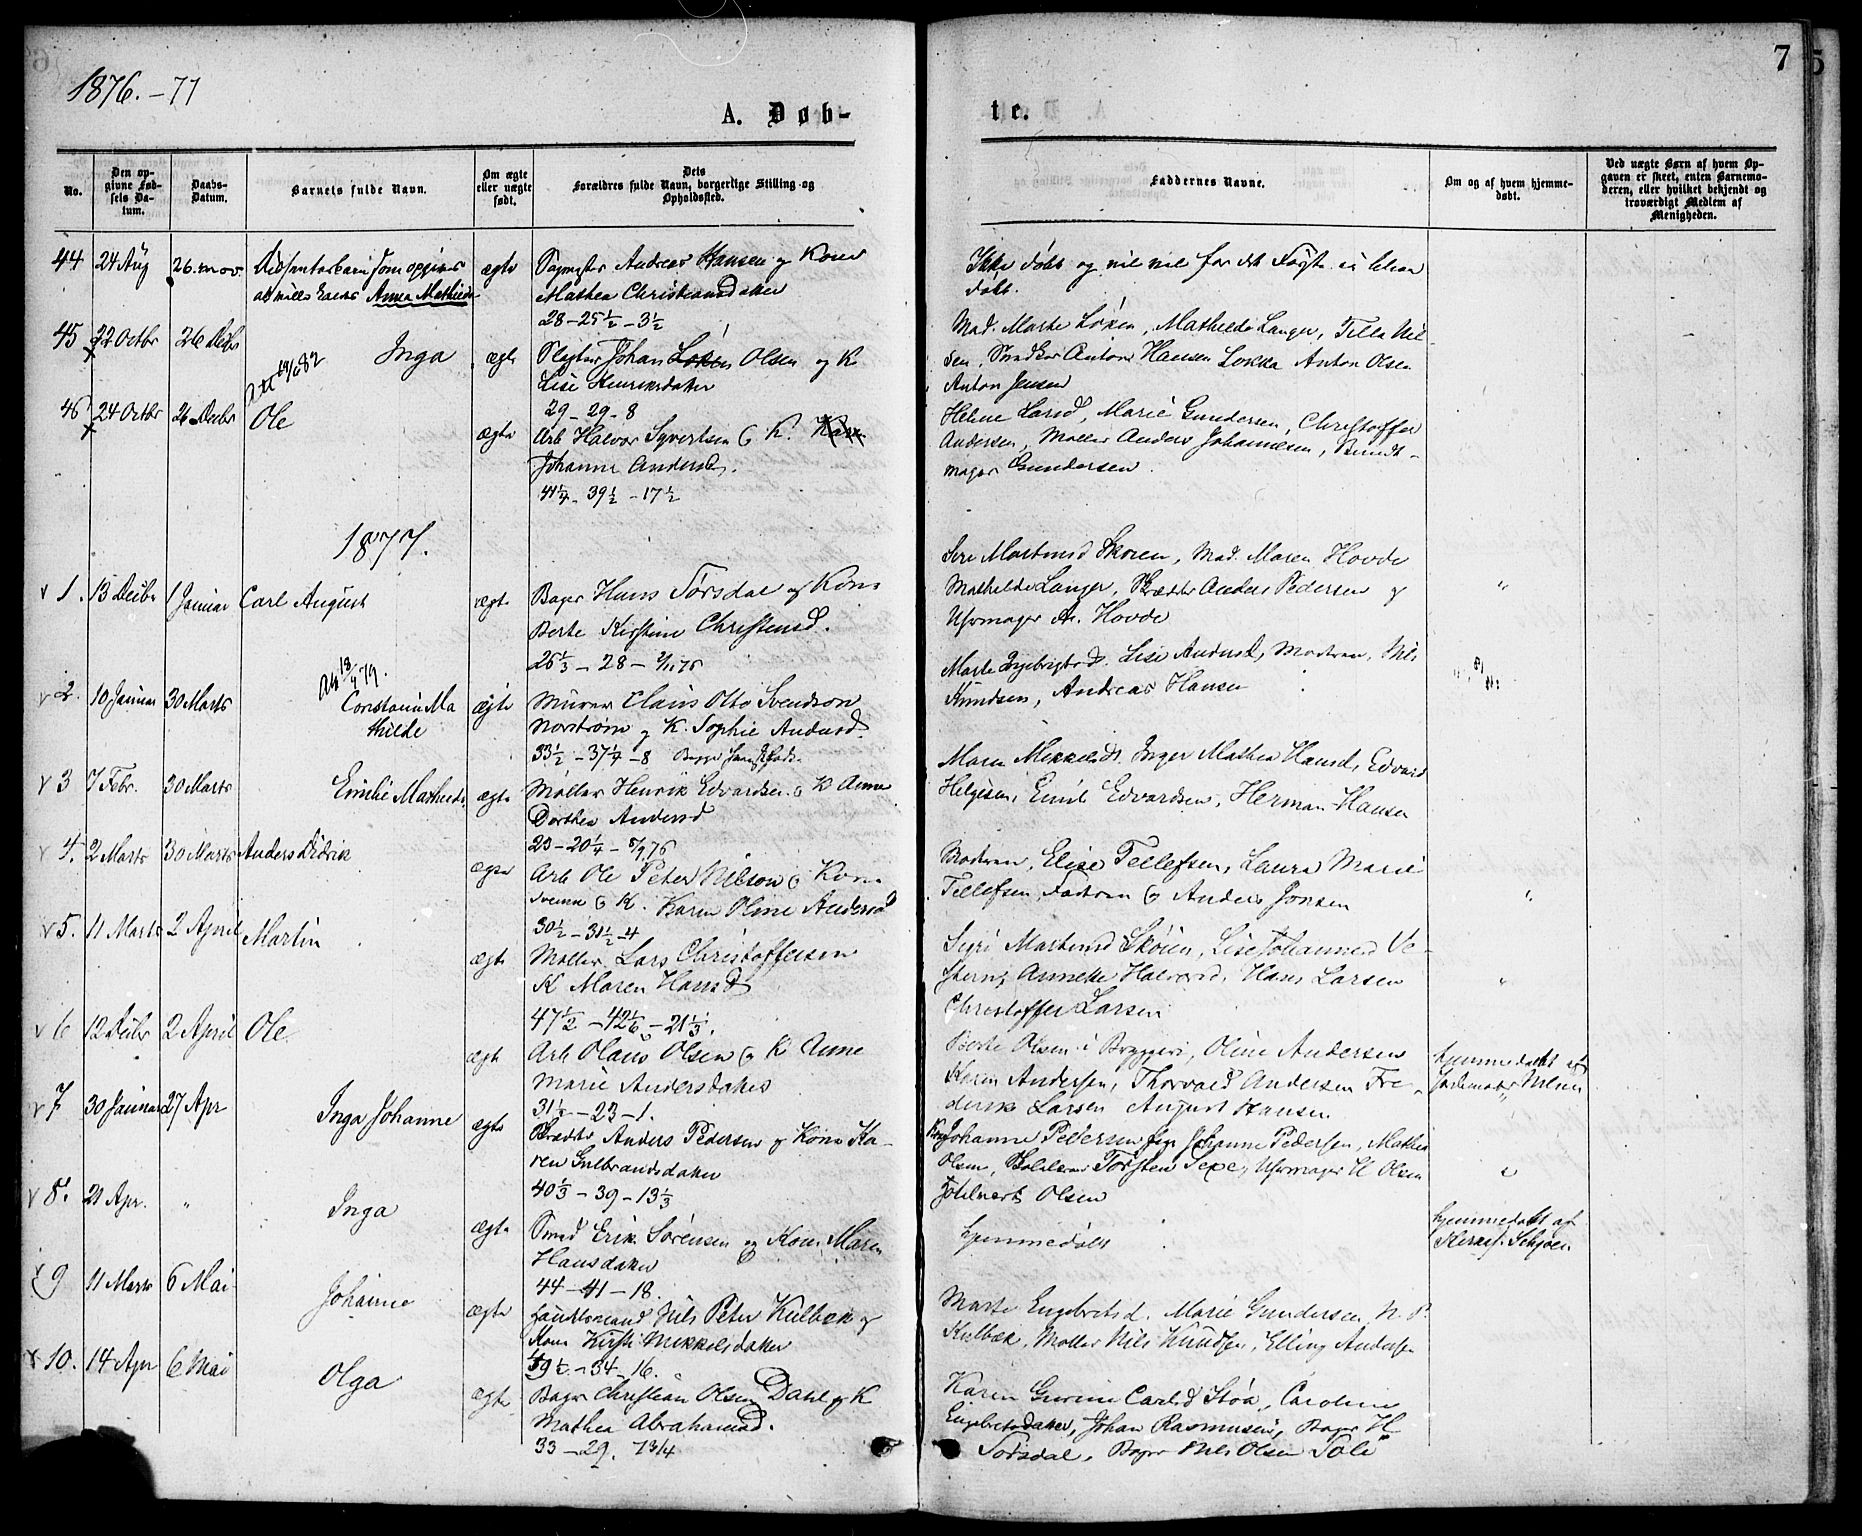 1876.-77
7
A. Døb-
te.
No.
Den op-
givne Fød-
sels Da-
tum.
Daabs-
Datum.
Barnets fulde Navn.
Om ægte
eller uægte
født.
Dets
Forældres fulde Navn, borgerlige Stilling og
Opholdssted.
Faddernes Navne.
Om og af hvem hjemme-
døbt.
Ved uægte Børn af hvem Op-
gaven er skeet, enten Barnemo-
deren, eller hvilket bekjendt og
troværdigt Medlem af
Menigheden.
44 24 Aug 26. nov. som opgives ægte Andreas Hansen og Kone
Anna Mathilde Mathea Christiansdatter
28 - 25½ - 3½
Ikke døbt og vil for det Første ei blive
døbt.
45 22 Octbr 26 Decbr Inga ægte Slagter Johan Løken Olsen og K
Lise Henriksdatter
29 - 29 - 8
Mad. Marte Løken, Mathilde Langer, Tilla Nil-
sen, Anton Hansen Lokka Anton Olsen
Anton Jensen
46 24 Octbr 26 Decbr Ole ægte Arb Halvor Syvertsen & K. Karen
Johanne Andersd.
41¼ - 39½ - 17½
Helene Larsd, Marie Gundersen, Christoffer
Andersen, Møller Anders Johannesen, Bundt-
mager Gundersen.
1877.
1. 13 Decbr 1 Januar Carl August ægte Bager Hans Torsdal og Kone
Berte Kirstine Christensd.
26⅓ - 28 -
Siri Martensd Skøien, Mad. Maren Hovde
Mathilde Langer, Skrædder Anders Pedersen og
Uhrmager A. Hovde "
2. 10 Januar 30 Marts Constance Ma
thilde ægte Murer Claus Otto Svendsen
Norstrøm og K. Sophie Andersd.
33½ - 37¼ - 8
Marte Engebrigtsd. Lise Andersd, Modren, Nils
Knudsen, Andreas Hansen
3 7 Febr. 30 Marts Emilie Mathilde ægte Møller Henrik Edvardsen & K Anne
Dorthea Andersd
23 - 20¼ - 8/9 76
Maren Mikkelsd. Inger Mathea Hansd, Edvard
Helgesen, Emil Edvardsen, Herman Hansen
4. 2 Marts 30 Marts Anders Didrik ægte Arb Ole Peter Nilson & Kone
& K. Karen Oline Andersd
30½ - 31½ - 4
Modren, Elise Tellefsen, Laura Marie
Tellefsen, Fadren & Anders Jonsen "
5. 11 Marts 2 April Martin ægte Møller Lars Christoffersen
K Maren Hansd
47½ - 42⅙ - 21⅓.
Siri Martensd Skøien, Lise Johannesd Ve-
stern, Annette Halvorsd, Hans Larsen
Christoffer Larsen "
6 12 Decbr 2 April Ole ægte Arb Olaus Olsen & K Anne
Marie Andersdatter
31½ - 23 - 1.
Berte Olsen i Bryggeri, Oline Andersen
Karen Andersen, Thorvald Andersen Fre-
derik Larsen August Hansen
hjemmedøbt af
Jordemoder Nilsen
7 30 Januar 27 Apr Inga Johanne ægte Skrædder Anders Pedersen og Kone Ka-
ren Gulbrandsdatter
40⅓ - 39 - 13⅓
Johanne Pedersen, Johanne Pedersen, Mathea
Olsen, Torsten Uhrmager H Olsen
Olsen
8. 21 Apr. " Inga ægte Smed Erik Sørensen og Kone Maren
Hansdatter
44 - 41 - 18.
hjemmedøbt
hjemmedøbt af
Schjøen
9 11 Marts 6 Mai Johanne ægte Nils Peter Kulbæk og
Kone Kirsti Mikkelsdatter
39½ - 34 - 16.
Marte Engebretsd. Marie Gundersen, N. P.
Kulbæk, Møller Nils Knudsen, Elling Andersen
10. 14 Apr 6 Mai Olga ægte Bager Christian Olsen Dahl og K
Mathea Abrahamsd.
33 - 29. 7 3/4
Karen Gurine Carlsd Stoa, Caroline
Engebretsdatter, Johan Rasmussen, Bager H
Torsdal, Bager Nils Olsen